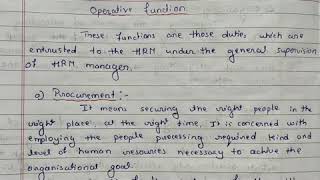 Operative function
These functions are those dutie, which are
entrusted to the HRM under the general supervision
of HRM manager.
a) Procurement :-
It means securing the right people in the
right place, at the right time. It is concerned with
employing the people processing required kind and
level of human resources necessary to achive the
organisational goal.